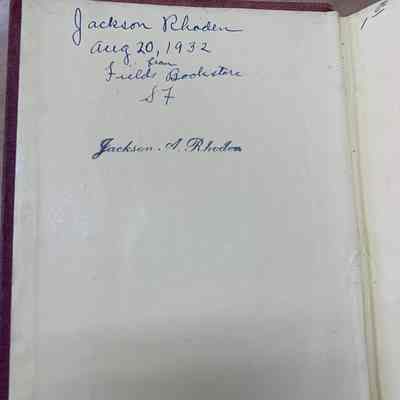 Jackson Rhoden
Aug 20, 1932
from
Fields Bookstore
SF
Jackson. A. Rhoden